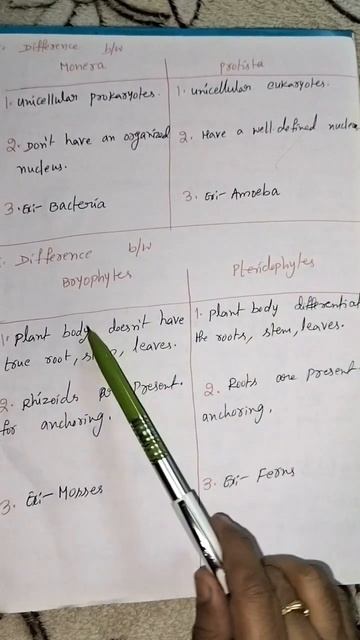 Difference b/w
Monera
Protista
1. Unicellular prokaryotes.
1. Unicellular eukaryotes.
2. Don't have an organized
nucleus.
2. Have a well defined
3. Ex:- Bacteria
3. Ex:- Amoeba
Difference b/w
Bryophytes
Pteridophytes
1. Plant body doesn't have
true root, leaves.
1. Plant body
the roots, stem, leaves.
2. Rhizoids present.
for anchoring.
2. Roots are present
anchoring.
3. Ex:- Mosses
3. Ex:- Ferns